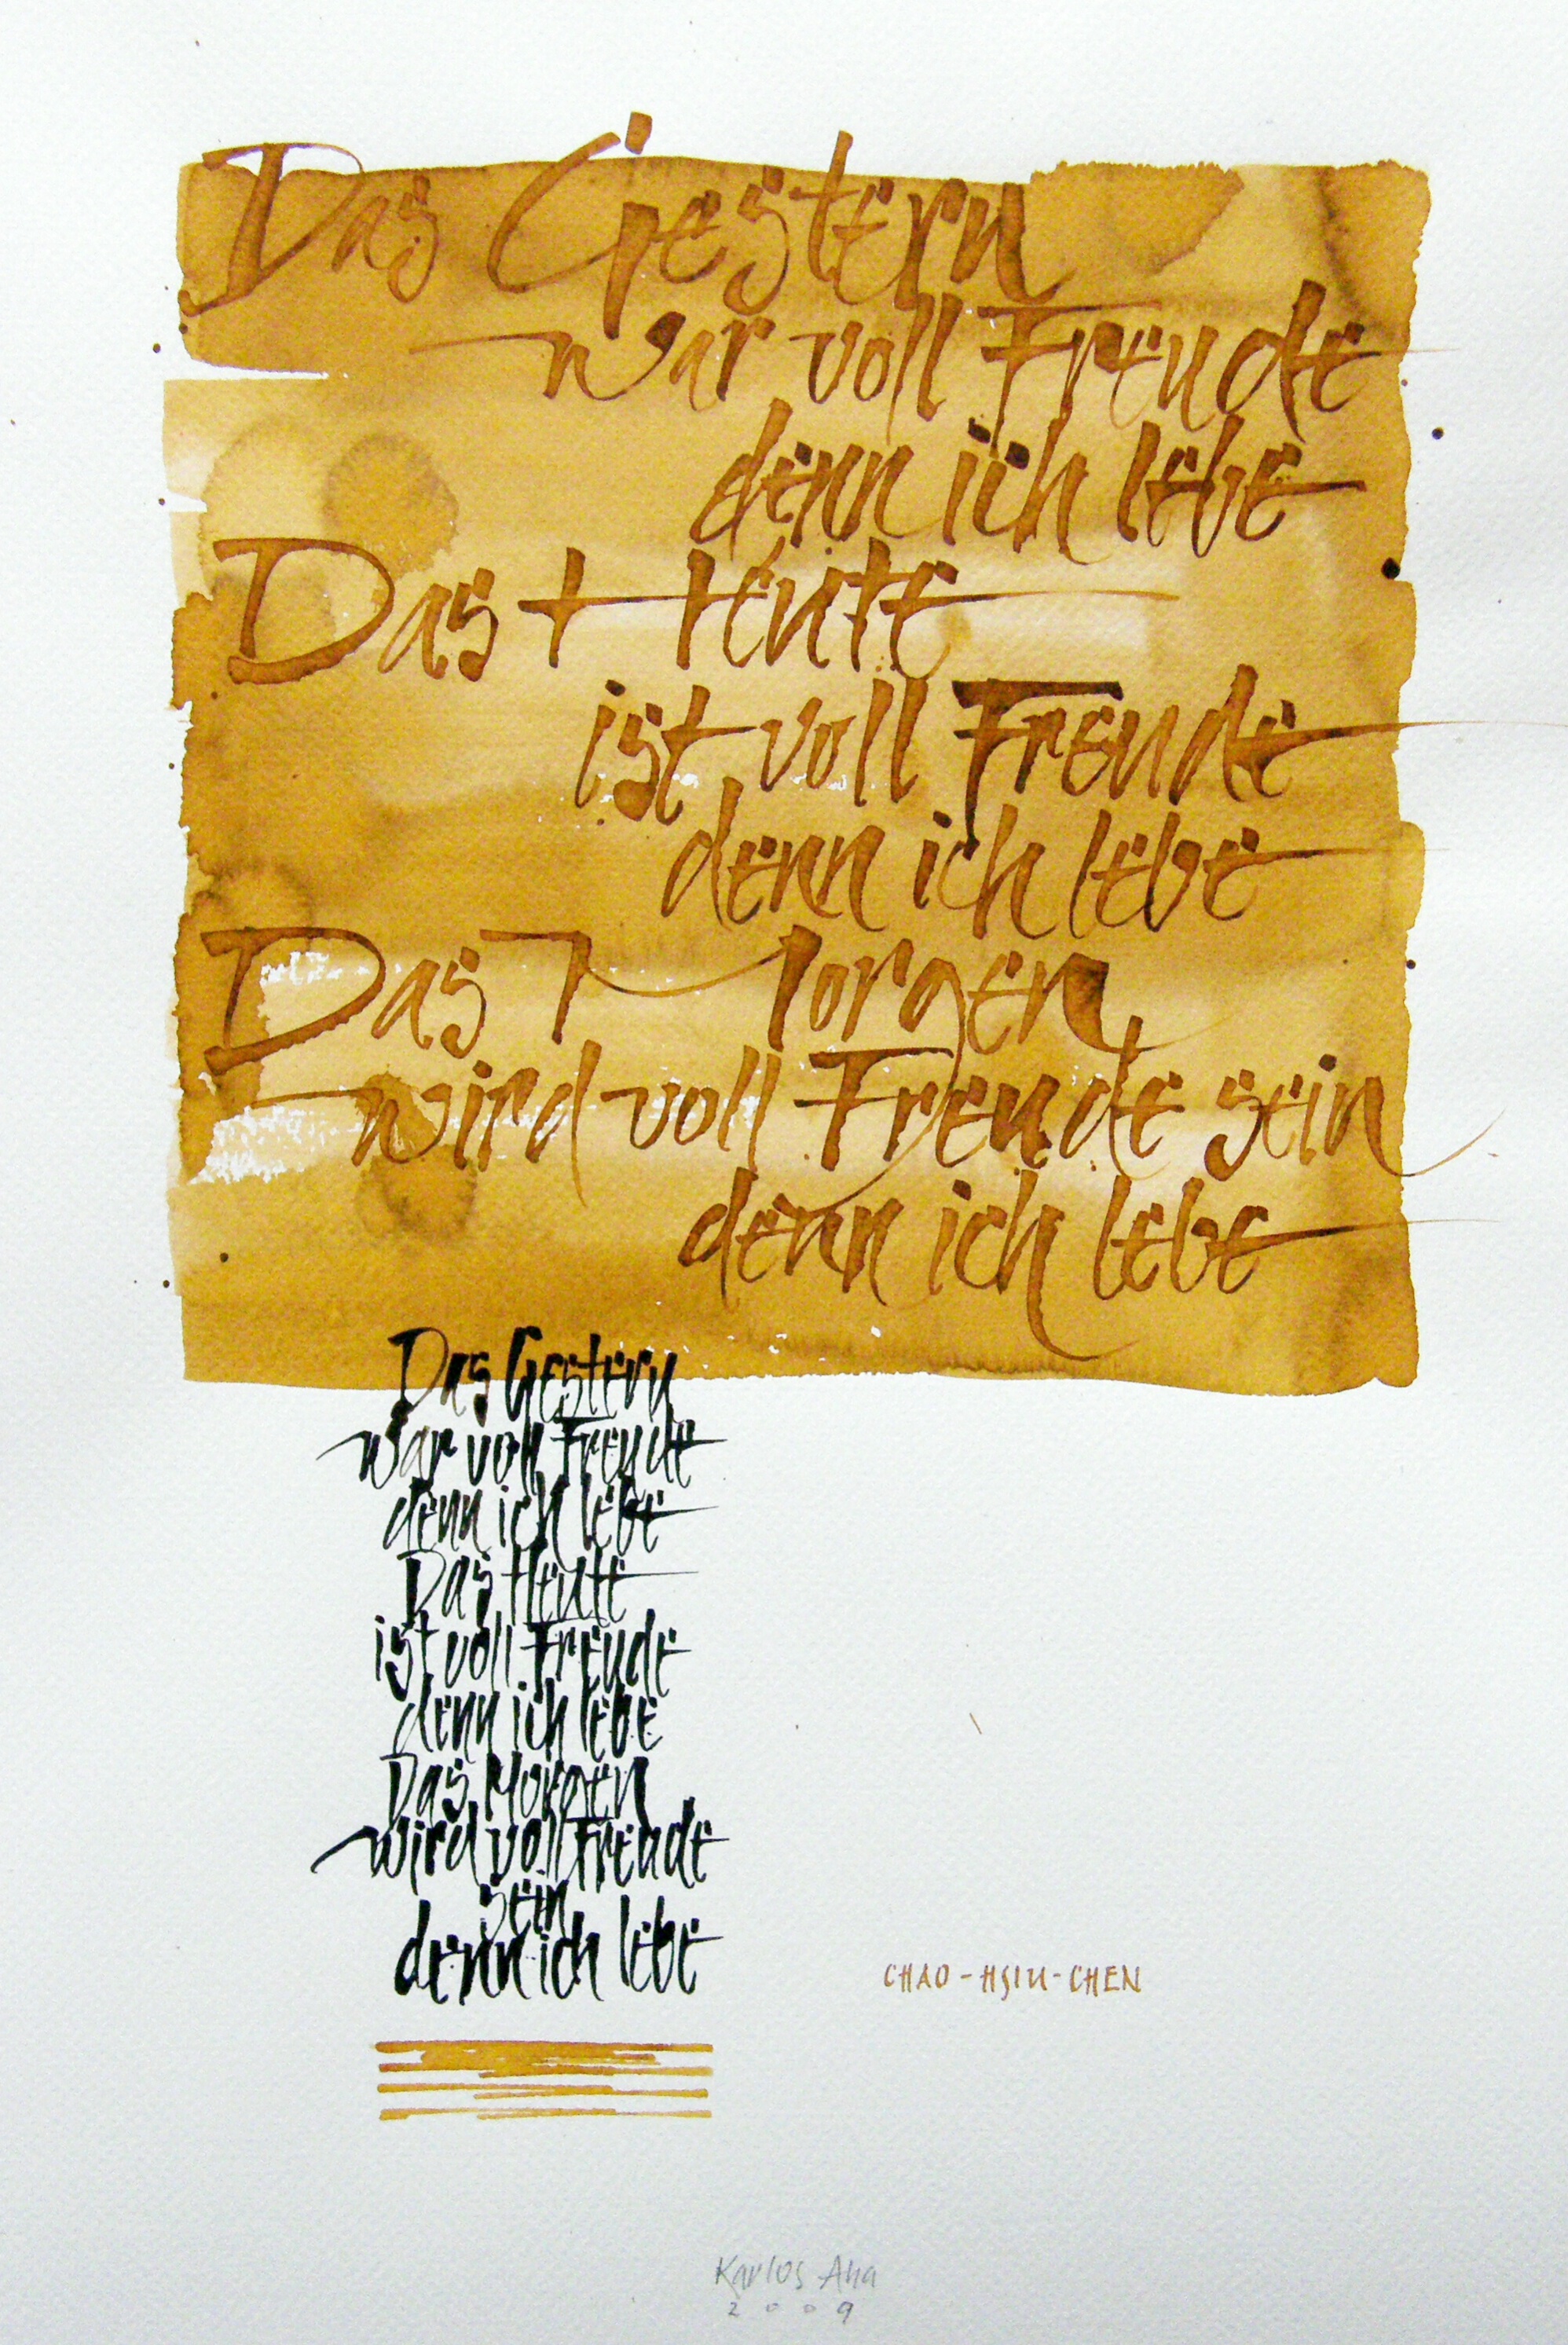 Das Gestern
war voll Freude
denn ich lebe
Das Heute
ist voll Freude
denn ich lebe
Das Morgen
wird voll Freude sein
denn ich lebe
Das Gestern
war voll Freude
denn ich lebe
Das Heute
ist voll Freude
denn ich lebe
Das Morgen
wird voll Freude
sein
denn ich lebe
CHAO-HSIU-CHEN
Karlos Aha
2009